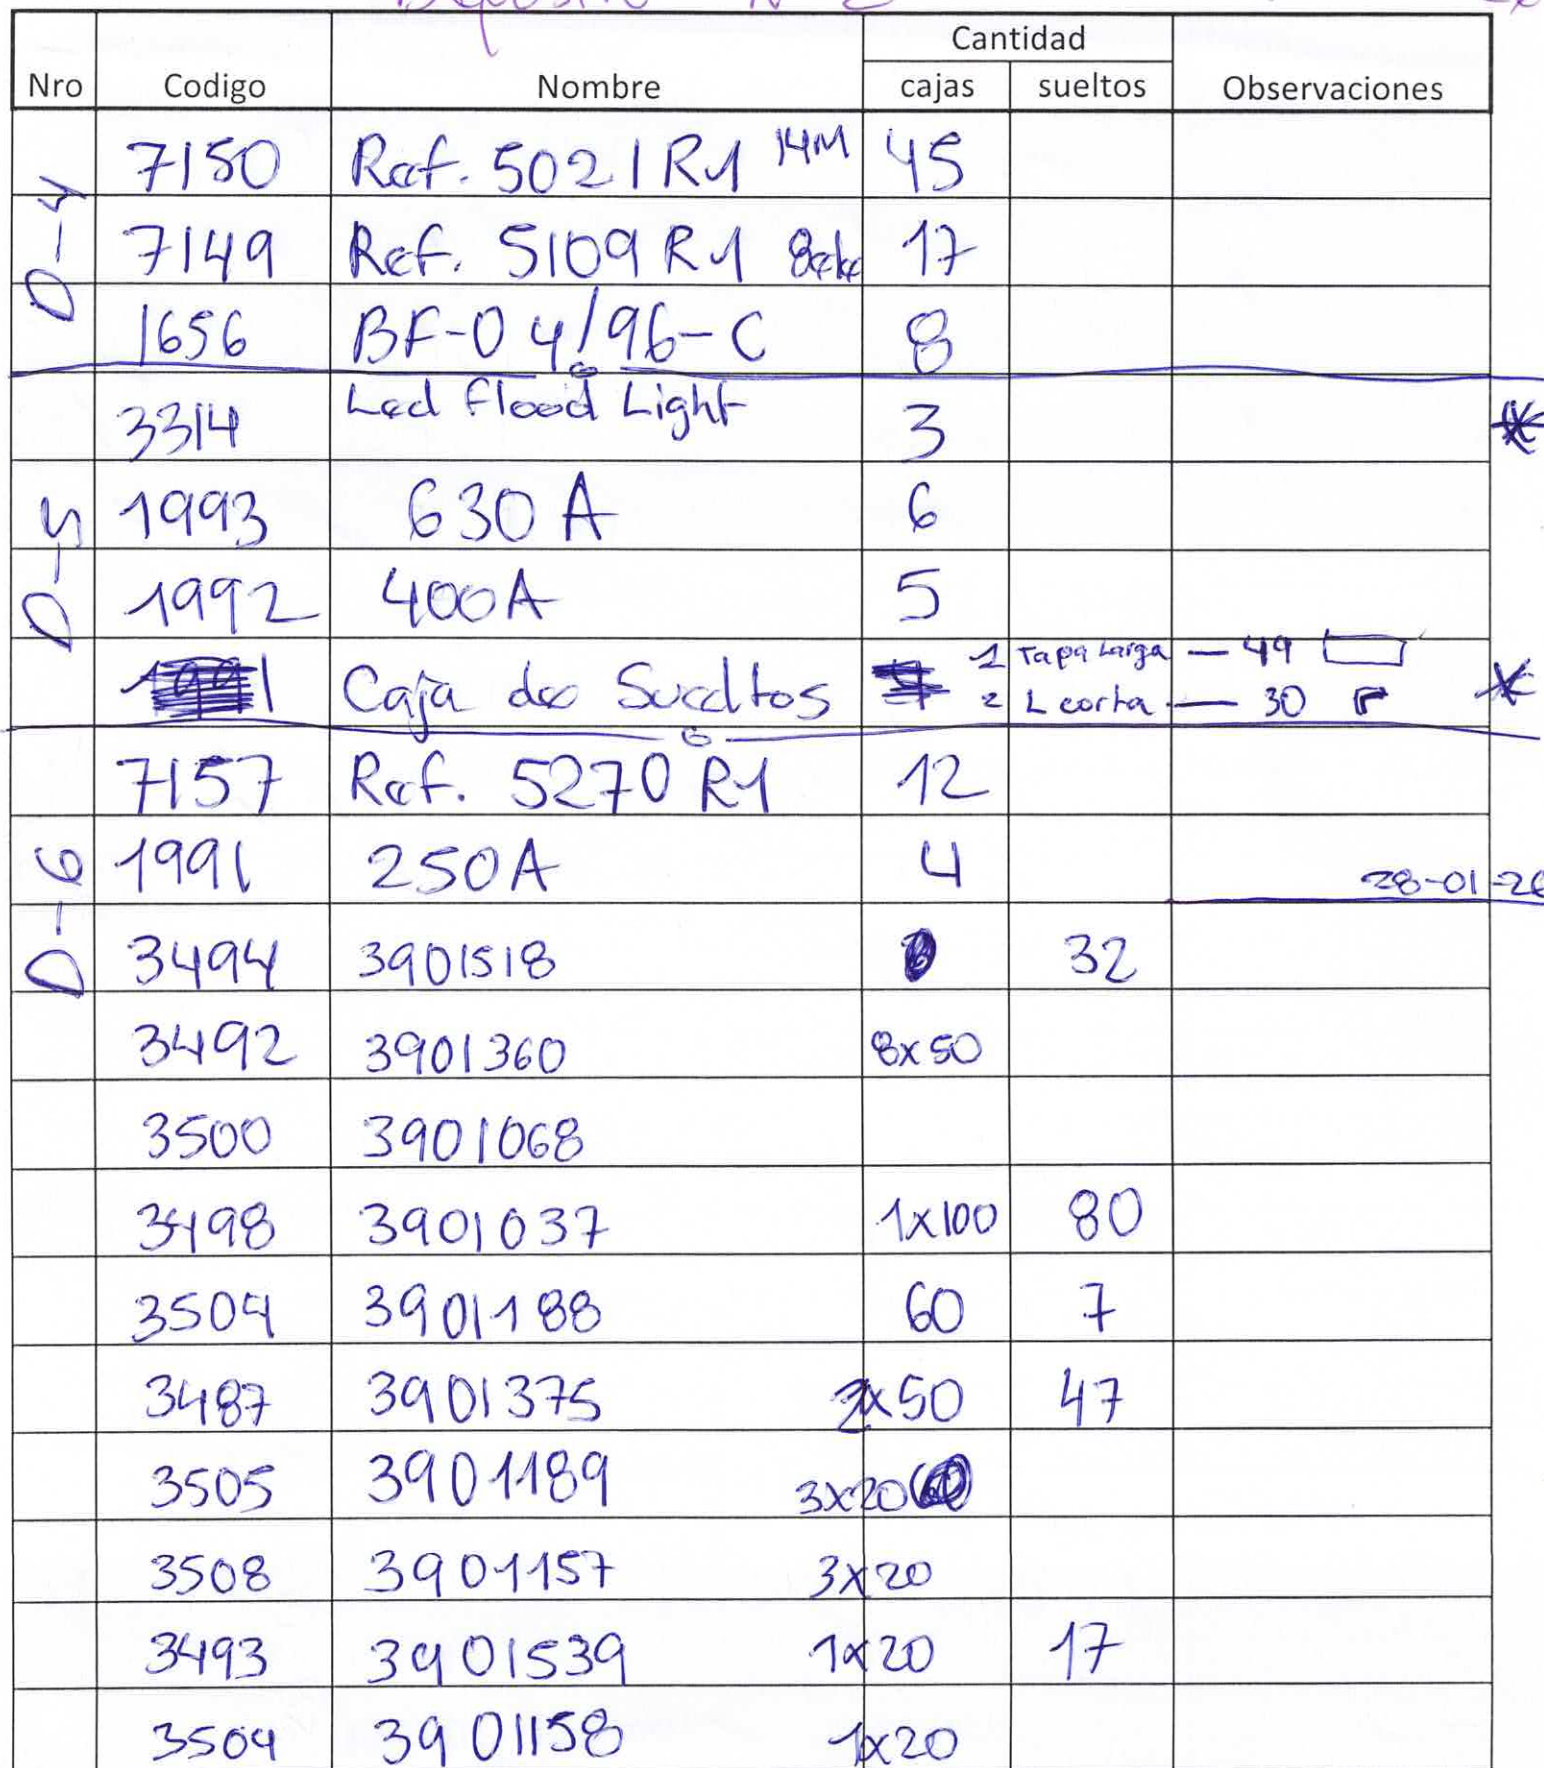 Deposito N° 2
Cantidad
Nro Codigo Nombre cajas sueltos Observaciones
D-4
7150 Ref. 5021 R1 14M 45
7149 Ref. 5109 R1 17
1656 BF-04/96-C 8
3314 Led flood Light 3
D-5
1993 630 A 6
1992 400A 5
1991 Caja de Sueltos 1 Tapa Larga — 49
2 L corta — 30
7157 Ref. 5270 R1 12
D-6
1991 250A 4
28-01-26
3494 3901518 32
3492 3901360 8x50
3500 3901068
3498 3901037 1x100 80
3504 3901188 60 7
3487 3901375 2x50 47
3505 3901189 3x20
3508 3901157 3x20
3493 3901539 1x20 17
3504 3901158 1x20